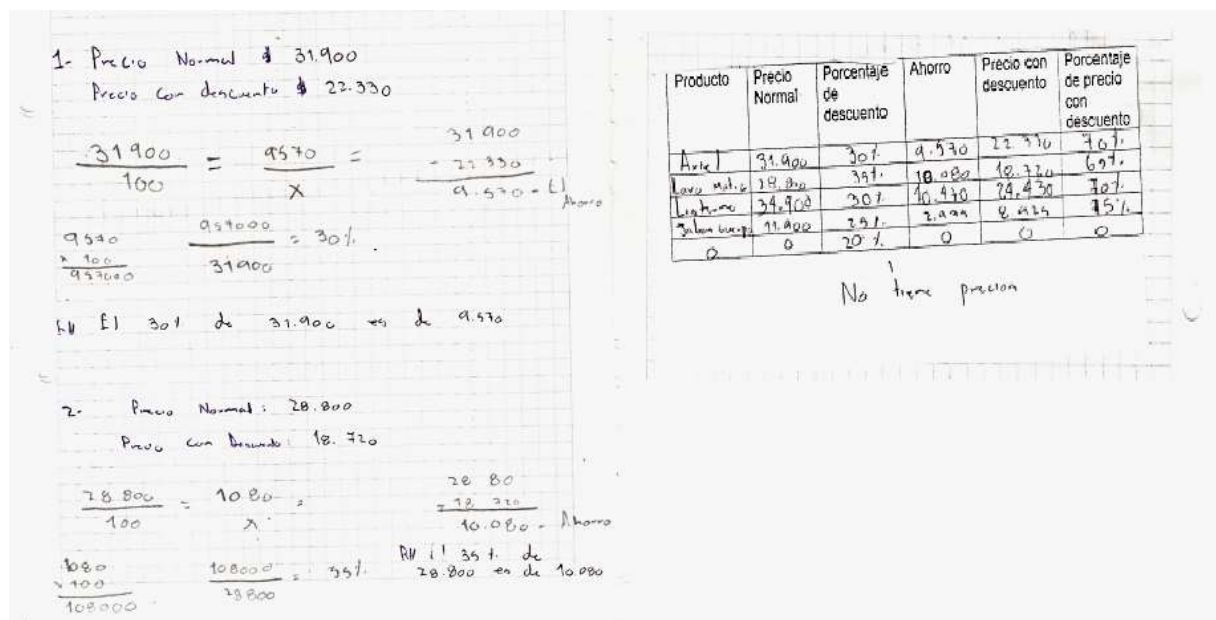 1- Precio Normal $ 31.900
Precio con descuento $ 22.330
31900 / 100 = 9570 / X =
31900
- 22330
9.570 - El Ahorro
9570
x 100
957000
957000 / 31900 = 30%.
R// El 30% de 31.900 es de 9.570
2- Precio Normal: 28.800
Precio con Descuento: 18.720
28.800 / 100 = 1080 / X =
28 80
- 18 720
10.080 - Ahorro
1080
x 100
108000
108000 / 28800 = 35%
R// El 35%. de
28.800 es de 10.080
Producto Precio Normal Porcentaje de descuento Ahorro Precio con descuento Porcentaje de precio con descuento
Ariel 31.900 30%. 9.570 22 330 70%.
28.800 35%. 10.080 18.720 65%.
34.900 30% 10.470 24.430 70%.
Jabon 11.900 25%. 8.925 75%.
0 0 20 %. 0 0 0
No tiene precion